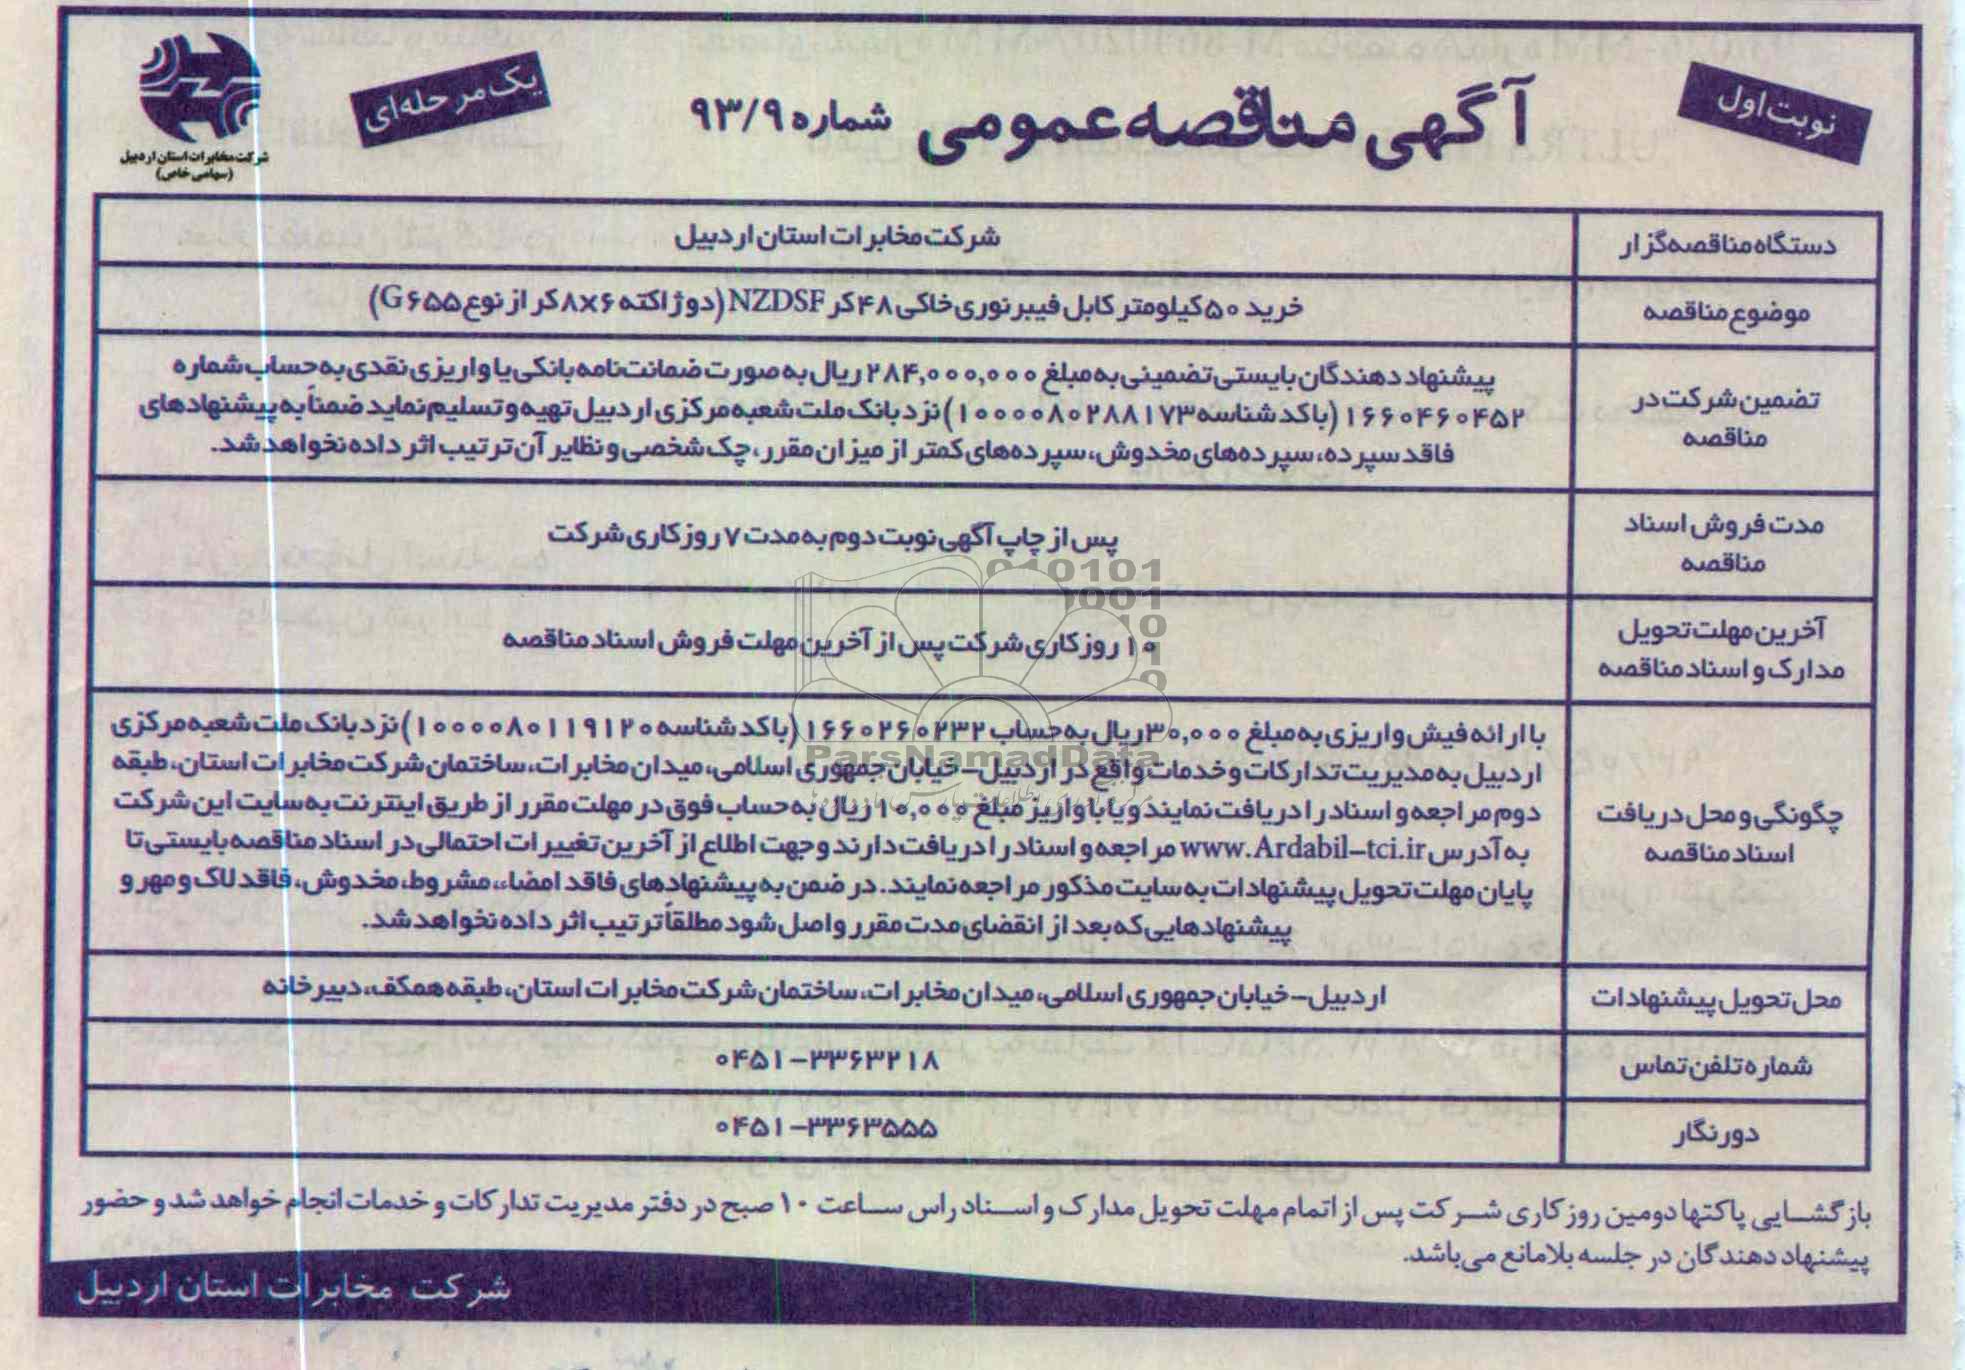 نوبت اول
آگهی مناقصه عمومی شماره ۹۳/۹
یک مرحله‌ای
شرکت مخابرات استان اردبیل
(سهامی خاص)
دستگاه مناقصه‌گزار
شرکت مخابرات استان اردبیل
موضوع مناقصه
خرید ۵۰ کیلومتر کابل فیبر نوری خاکی ۴۸ کر NZDSF (دوژاکته ۸x۶ کر از نوع G۶۵۵)
تضمین شرکت در
مناقصه
پیشنهاد دهندگان بایستی تضمینی به مبلغ ۲۸۴,۰۰۰,۰۰۰ ریال به صورت ضمانت‌نامه بانکی یا واریزی نقدی به حساب شماره
۱۶۶۰۴۶۰۴۵۲ (با کد شناسه ۱۰۰۰۰۸۰۲۸۸۱۷۳) نزد بانک ملت شعبه مرکزی اردبیل تهیه و تسلیم نماید ضمناً به پیشنهادهای
فاقد سپرده، سپرده‌های مخدوش، سپرده‌های کمتر از میزان مقرر، چک شخصی و نظایر آن ترتیب اثر داده نخواهد شد.
مدت فروش اسناد
مناقصه
پس از چاپ آگهی نوبت دوم به مدت ۷ روز کاری شرکت
آخرین مهلت تحویل
مدارک و اسناد مناقصه
۱۰ روز کاری شرکت پس از آخرین مهلت فروش اسناد مناقصه
چگونگی و محل دریافت
اسناد مناقصه
با ارائه فیش واریزی به مبلغ ۳۰,۰۰۰ ریال به حساب ۱۶۶۰۲۶۰۲۳۲ (با کد شناسه ۱۰۰۰۰۸۰۱۱۹۱۲۰) نزد بانک ملت شعبه مرکزی
اردبیل به مدیریت تدارکات و خدمات واقع در اردبیل-خیابان جمهوری اسلامی، میدان مخابرات، ساختمان شرکت مخابرات استان، طبقه
دوم مراجعه و اسناد را دریافت نمایند و یا با واریز مبلغ ۱۰,۰۰۰ ریال به حساب فوق در مهلت مقرر از طریق اینترنت به سایت این شرکت
به آدرس www.Ardabil-tci.ir مراجعه و اسناد را دریافت دارند و جهت اطلاع از آخرین تغییرات احتمالی در اسناد مناقصه بایستی تا
پایان مهلت تحویل پیشنهادات به سایت مذکور مراجعه نمایند. در ضمن به پیشنهادهای فاقد امضاء، مشروط، مخدوش، فاقد لاک و مهر و
پیشنهادهایی که بعد از انقضای مدت مقرر واصل شود مطلقاً ترتیب اثر داده نخواهد شد.
محل تحویل پیشنهادات
اردبیل-خیابان جمهوری اسلامی، میدان مخابرات، ساختمان شرکت مخابرات استان، طبقه همکف، دبیرخانه
شماره تلفن تماس
۰۴۵۱-۳۳۶۳۲۱۸
دورنگار
۰۴۵۱-۳۳۶۳۵۵۵
بازگشایی پاکتها دومین روز کاری شرکت پس از اتمام مهلت تحویل مدارک و اسناد راس ساعت ۱۰ صبح در دفتر مدیریت تدارکات و خدمات انجام خواهد شد و حضور
پیشنهاد دهندگان در جلسه بلامانع می‌باشد.
شرکت مخابرات استان اردبیل
ParsNamadData